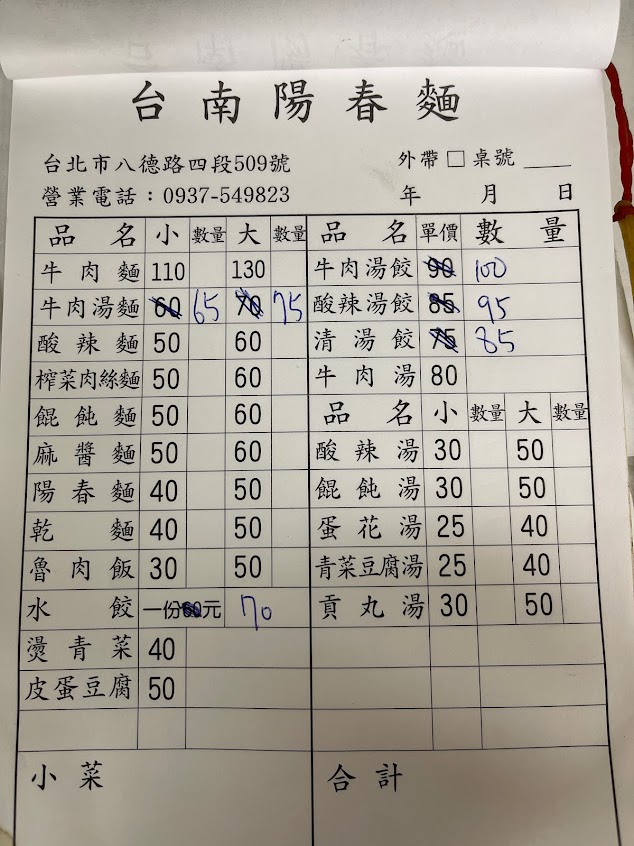 台南陽春麵
台北市八德路四段509號
外帶 □ 桌號 ____
營業電話：0937-549823
年 月 日
品名 小 數量 大 數量
牛肉麵 110 130
牛肉湯麵 60 65 70 75
酸辣麵 50 60
榨菜肉絲麵 50 60
餛飩麵 50 60
麻醬麵 50 60
陽春麵 40 50
乾麵 40 50
魯肉飯 30 50
水餃 一份60元 70
燙青菜 40
皮蛋豆腐 50
小菜
品名 單價 數量
牛肉湯餃 90 100
酸辣湯餃 85 95
清湯餃 75 85
牛肉湯 80
品名 小 數量 大 數量
酸辣湯 30 50
餛飩湯 30 50
蛋花湯 25 40
青菜豆腐湯 25 40
貢丸湯 30 50
合計